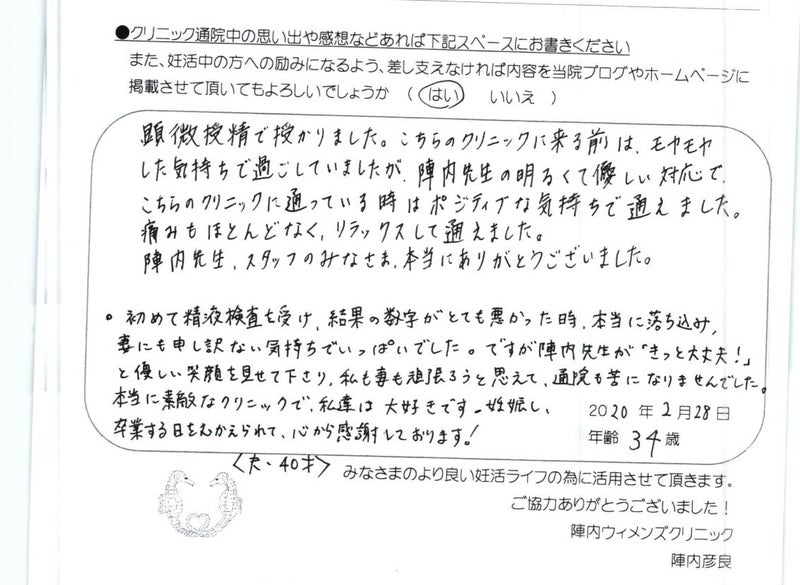 ●クリニック通院中の思い出や感想などあれば下記スペースにお書きください
また、妊活中の方への励みになるよう、差し支えなければ内容を当院ブログやホームページに
掲載させて頂いてもよろしいでしょうか （ はい いいえ ）
顕微授精で授かりました。こちらのクリニックに来る前は、モヤモヤ
した気持ちで過ごしていましたが、陣内先生の明るくて優しい対応で、
こちらのクリニックに通っている時はポジティブな気持ちで通えました。
痛みもほとんどなく、リラックスして通えました。
陣内先生、スタッフのみなさま、本当にありがとうございました。
○ 初めて精液検査を受け、結果の数字がとても悪かった時、本当に落ち込み、
妻にも申し訳ない気持ちでいっぱいでした。ですが陣内先生が「きっと大丈夫！」
と優しい笑顔を見せて下さり、私も妻も頑張ろうと思えて、通院も苦になりませんでした。
本当に素敵なクリニックで、私達は大好きです。妊娠し、
卒業する日をむかえられて、心から感謝しております！
2020 年 2 月 28 日
年齢 34 歳
〈夫・40才〉
みなさまのより良い妊活ライフの為に活用させて頂きます。
ご協力ありがとうございました！
陣内ウィメンズクリニック
陣内彦良